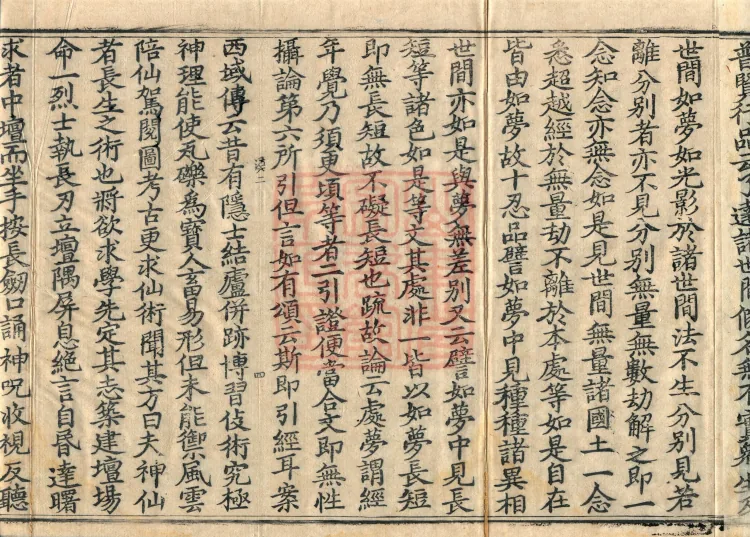 世間如夢如光影於諸世間法不生分別見若
離分別者亦不見分別無量無數劫解之即一
念知念亦無念如是見世間無量諸國土一念
悉超越經於無量劫不離於本處等如是自在
皆由如夢故十忍品譬如夢中見種種諸異相
世間亦如是與夢無差別又云譬如夢中見長
短等諸色如是等文其處非一皆以如夢長短
即無長短故不礙長短也疏故論云處夢謂經
年覺乃須臾頃等者二引證便當合文即無性
攝論第六所引但言如有頌云斯即引經耳案
四
西域傳云昔有隱士結廬併跡博習伎術究極
神理能使瓦礫為寶人畜易形但未能禦風雲
陪仙駕閱圖考古更求仙術聞其方曰夫神仙
者長生之術也將欲求學先定其志築建壇場
命一烈士執長刀立壇隅屏息絕言自昏達曙
求者中壇而坐手按長劒口誦神呪收視反聽